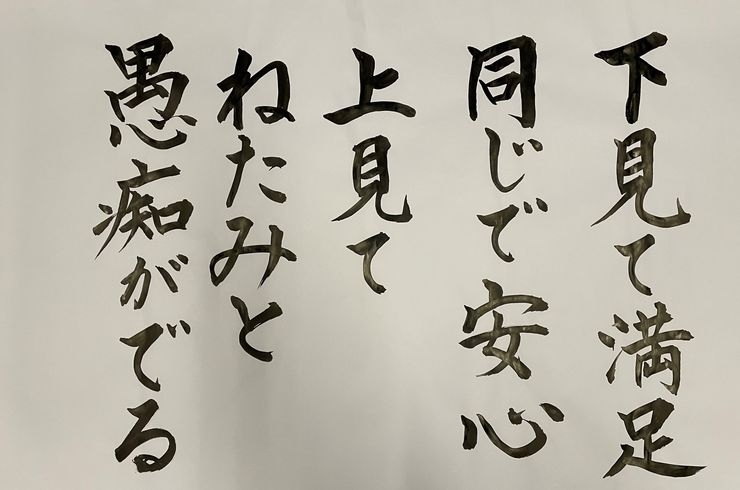 下見て満足
同じで安心
上見て
ねたみと
愚痴がでる